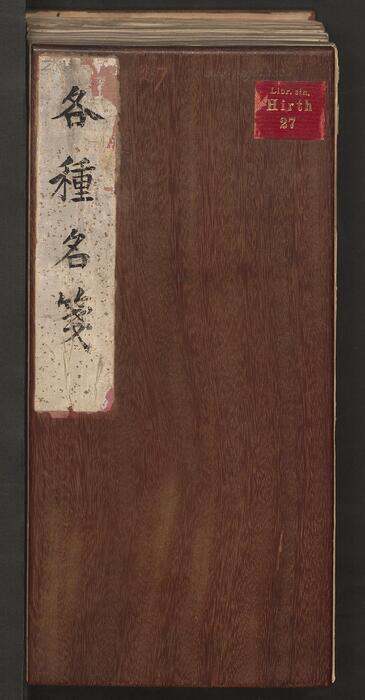 各種名箋
Libr. sin.
Hirth
27